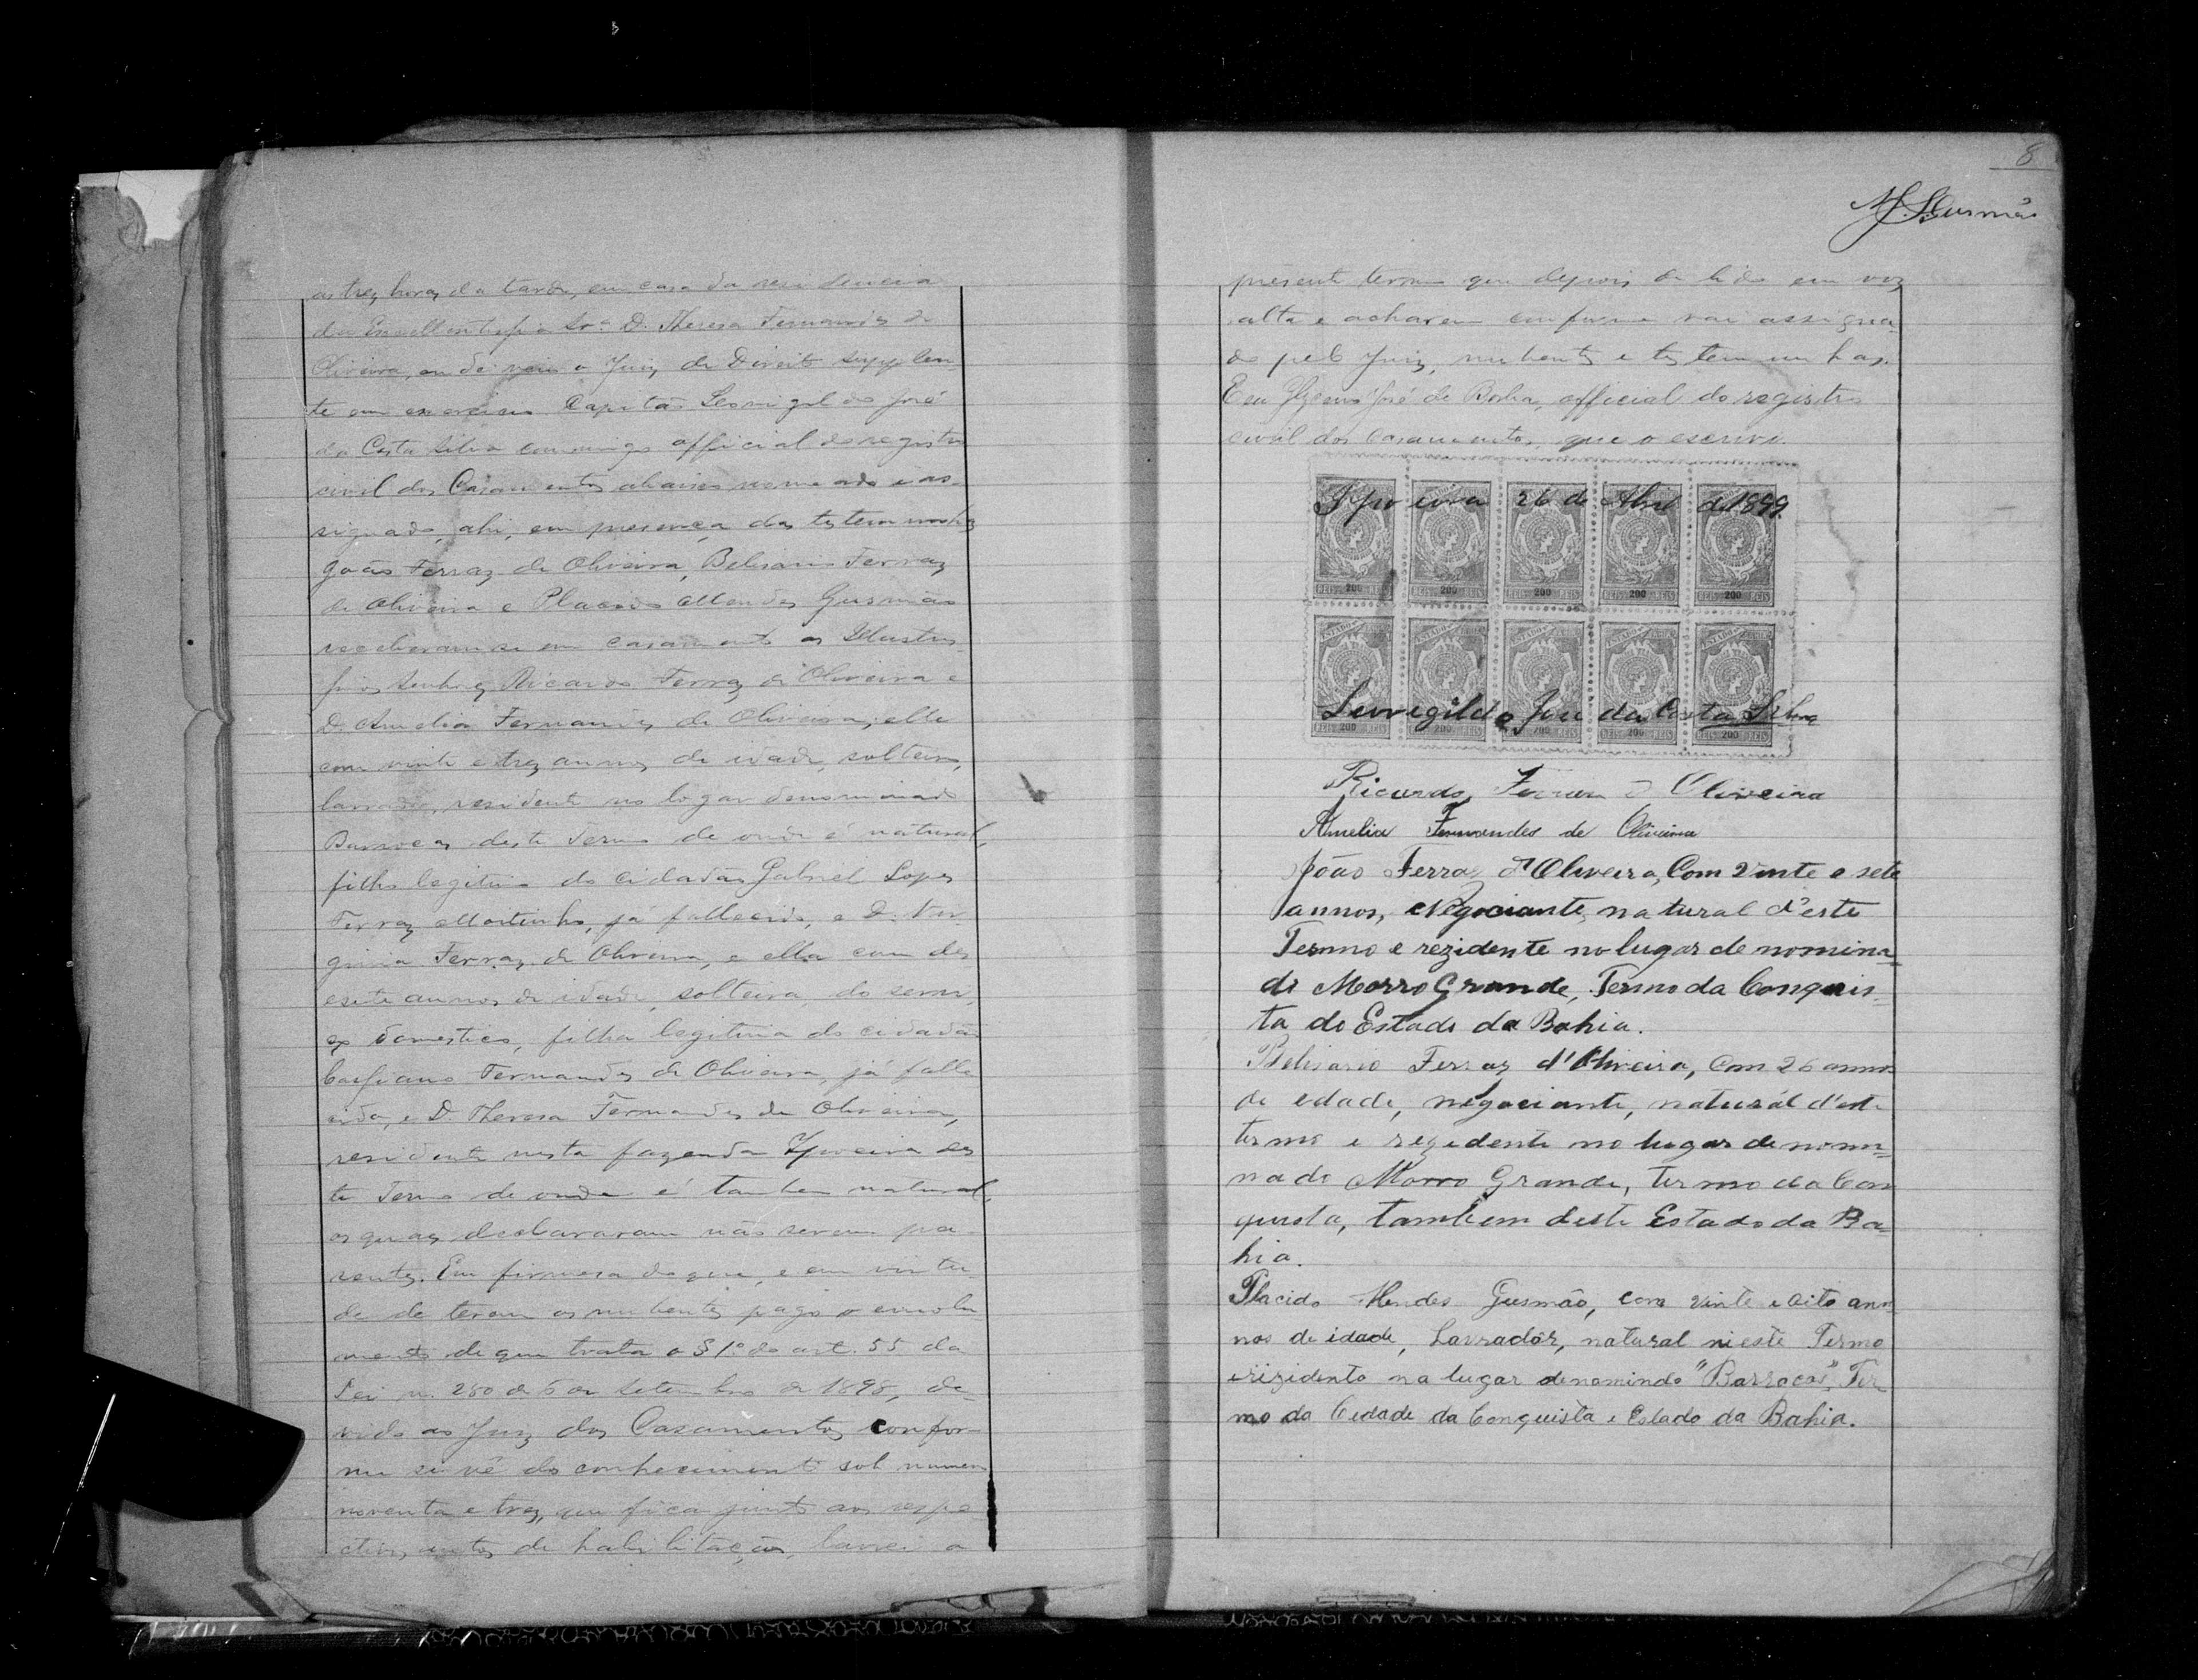 as trez horas da tarde, em casa da residencia
da Excellentissima Srª D. Theresa Fernandes de
Oliveira, onde veiu o Juiz de Direito supplen-
te em exercicio Capitão Leovigildo José
da Costa Silva commigo official do registro
civil dos Casamentos abaixo nomeado e as-
signado, ahi, em presença das testemunhas
João Ferraz de Oliveira, Belisario Ferraz
de Oliveira e Placido Mendes Gusmão
receberam-se em casamento os Illustris-
simos Senhores Ricardo Ferraz de Oliveira e
D. Amelia Fernandes de Oliveira; elle
com vinte e trez annos de idade, solteiro,
lavrador, residente no logar denominado
Barrocas deste Termo de onde é natural,
filho legitimo do cidadão Gabriel Lopes
Ferraz Moitinho, já fallecido, e D. Vir-
ginia Ferraz de Oliveira, e ella com des
esete annos de idade, solteira, do servi-
ço domestico, filha legitima do cidadão
Cassiano Fernandes de Oliveira, já falle
cido, e D. Theresa Fernandes de Oliveira,
residente nesta fazenda Ypoeira des
te Termo de onde é tambem natural,
os quaes declararam não serem pa-
rentes. Em firmesa do que, e em virtu-
de de terem os nubentes pago o emolu
mento de que trata o § 1º do art. 55 da
Lei n. 280 de 6 de Setembro de 1898, de-
vido ao Juiz dos Casamentos confor-
me se vê do conhecimento sob numero
noventa e trez, que fica junto aos respe
ctivos autos de habilitação, lavrei o
8
M. Gusmão
presente termo que depois de lido em voz
alta e acharem conforme vai assigna-
do pelo Juiz, nubentes e testemunhas.
Eu José da Rocha, official do registro
civil dos Casamentos, que o escrevi.
Ypoeira 26 de Abril de 1899.
REIS 200 REIS
Leovegildo José da Costa Silva
REIS 200 REIS
Ricardo Ferraz d Oliveira
Amelia Fernandes de Oliveira
João Ferraz d'Oliveira, Com vinte e sete
annos, Negociante, natural d'este
Termo e rezidente no lugar denomina-
do Morro Grande, Termo da Conquis-
ta do Estado da Bahia.
Belisario Ferraz d'Oliveira, com 26 annos
de edade, negociante, naturál d'este
termo e rezidente no lugar denomi-
nado Morro Grande, termo da Con
quista, tambem deste Estado da Ba-
hia.
Placido Mendes Gusmão, com vinte e oito an-
nos de idade, Lavradôr, natural nieste Termo
erizidento na lugar denomindo "Barrocas", Ter
mo da Cidade da Conquista e Estado da Bahia.